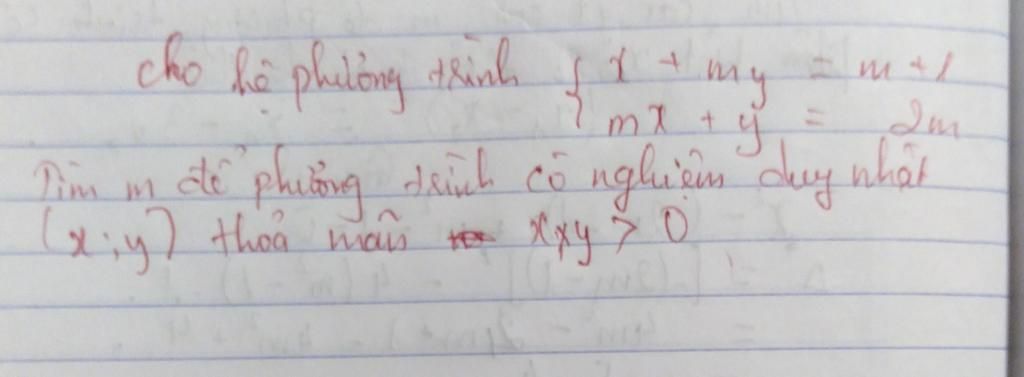 cho hệ phương trình { x + my = m + 1
mx + y = 2m
Tìm m để phương trình có nghiệm duy nhất
(x; y) thoả mãn x x y > 0